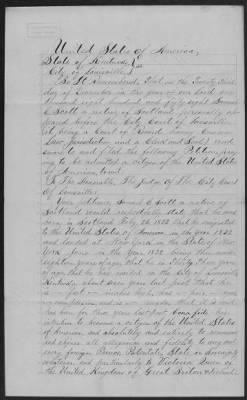 United States of America,
State of Kentucky
City of Louisville
Be It Remembered, That on the Twenty Third
day of December in the year of our Lord one
thousand eight hundred and fifty eight
C Scott a native of Scotland personally ap
peared before the City Court of Louisville
(it being a Court of Record having Common
Law Jurisdiction and a Clerk and Seal) and
and filed the following Petition, pray
ing to be admitted a citizen of the United States
of America,
To The Honorable, The Judge of The City Court
Of Louisville.
Your petitioner, C Scott a native of
Scotland would respectfully state that he was
born in Scotland that he emigrated
to the United States of America, in the year
and landed at New York in the State of New
York in the year being then under
eighteen years of age, that he is Thirty Three years
of age that he has resided in the City of Louisville
Kentucky, years last past that he
is feet inches high,
complexion, and is
has been for three years last past bona fide his
intention to become a citizen of the United States
of America and absolutely and entirely to renounce
and abjure all allegiance and fidelity to any and
every foreign Prince, Potentate, State or Sovereignty
whatever and particularly to Victoria Queen of
the United Kingdom of Great Britain & Ireland